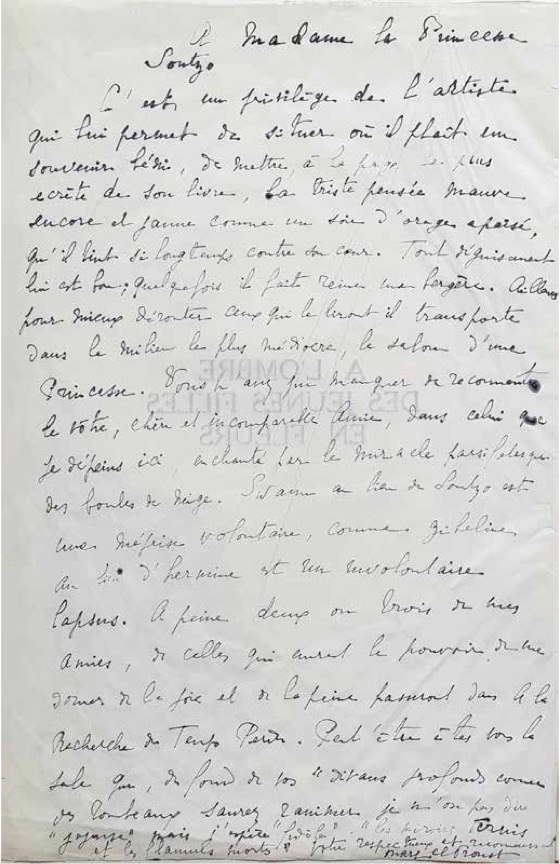 A Madame la Princesse
Soutzo
C'est un privilège de l'artiste
qui lui permet de situer où il plaît un
souvenir béni, de mettre, à la page la plus
secrète de son livre, la triste pensée mauve
encore et jaune comme un soir d'orage apaisé,
qu'il tint si longtemps contre son cœur. Tout déguisement
lui est bon ; quelquefois il faite reine une bergère. Ailleurs
pour mieux dérouter ceux qui le liront il transporte
dans le milieu le plus médiocre, le salon d'une
Princesse. Vous n'avez pu manquer de reconnaître
le vôtre, chère et incomparable Amie, dans celui que
je dépeins ici, enchanté par le miracle parsifalesque
des boules de neige. Swann au lieu de Soutzo est
une méprise volontaire, comme zibeline
au lieu d'hermine est un involontaire
lapsus. A peine deux ou trois de mes
amies, de celles qui eurent le pouvoir de me
donner de la joie et de la peine passeront dans A la
Recherche du Temps Perdu. Peut-être êtes vous la
seule que, du fond de vos "divans profonds comme
des tombeaux saurez ranimer je n'ose pas dire
"joyeuse" mais j'espère "fidèle" "les miroirs ternis
et les flammes mortes". Votre respectueux et reconnaissant
Marcel Proust
A L'OMBRE
DES JEUNES FILLES
EN FLEURS